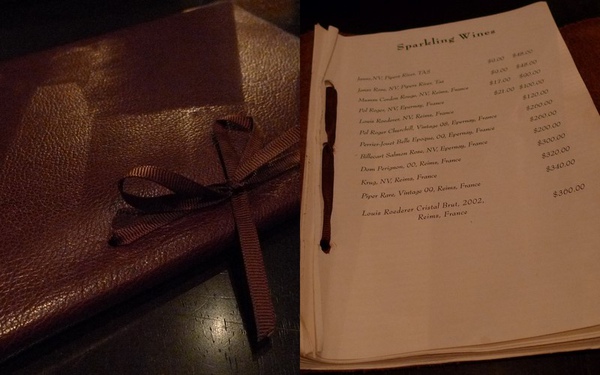 Sparkling Wines
Jansz, NV, Pipers River, TAS $9.00 $48.00
Jansz Rose, NV, Pipers River, Tas $9.00 $48.00
Mumm Cordon Rouge, NV, Reims, France $15.00 $90.00
Pol Roger, NV, Epernay, France $21.00 $100.00
Louis Roederer, NV, Reims, France $120.00
Pol Roger Churchill, Vintage 98, Epernay, France $260.00
Perrier-Jouet Belle Epoque, 02, Epernay, France $260.00
Billecart Salmon Rose, NV, Epernay, France $200.00
Dom Perignon, 00, Reims, France $300.00
Krug, NV, Reims, France $320.00
Piper Rare, Vintage 99, Reims, France $340.00
Louis Roederer Cristal Brut, 2002,
Reims, France $360.00